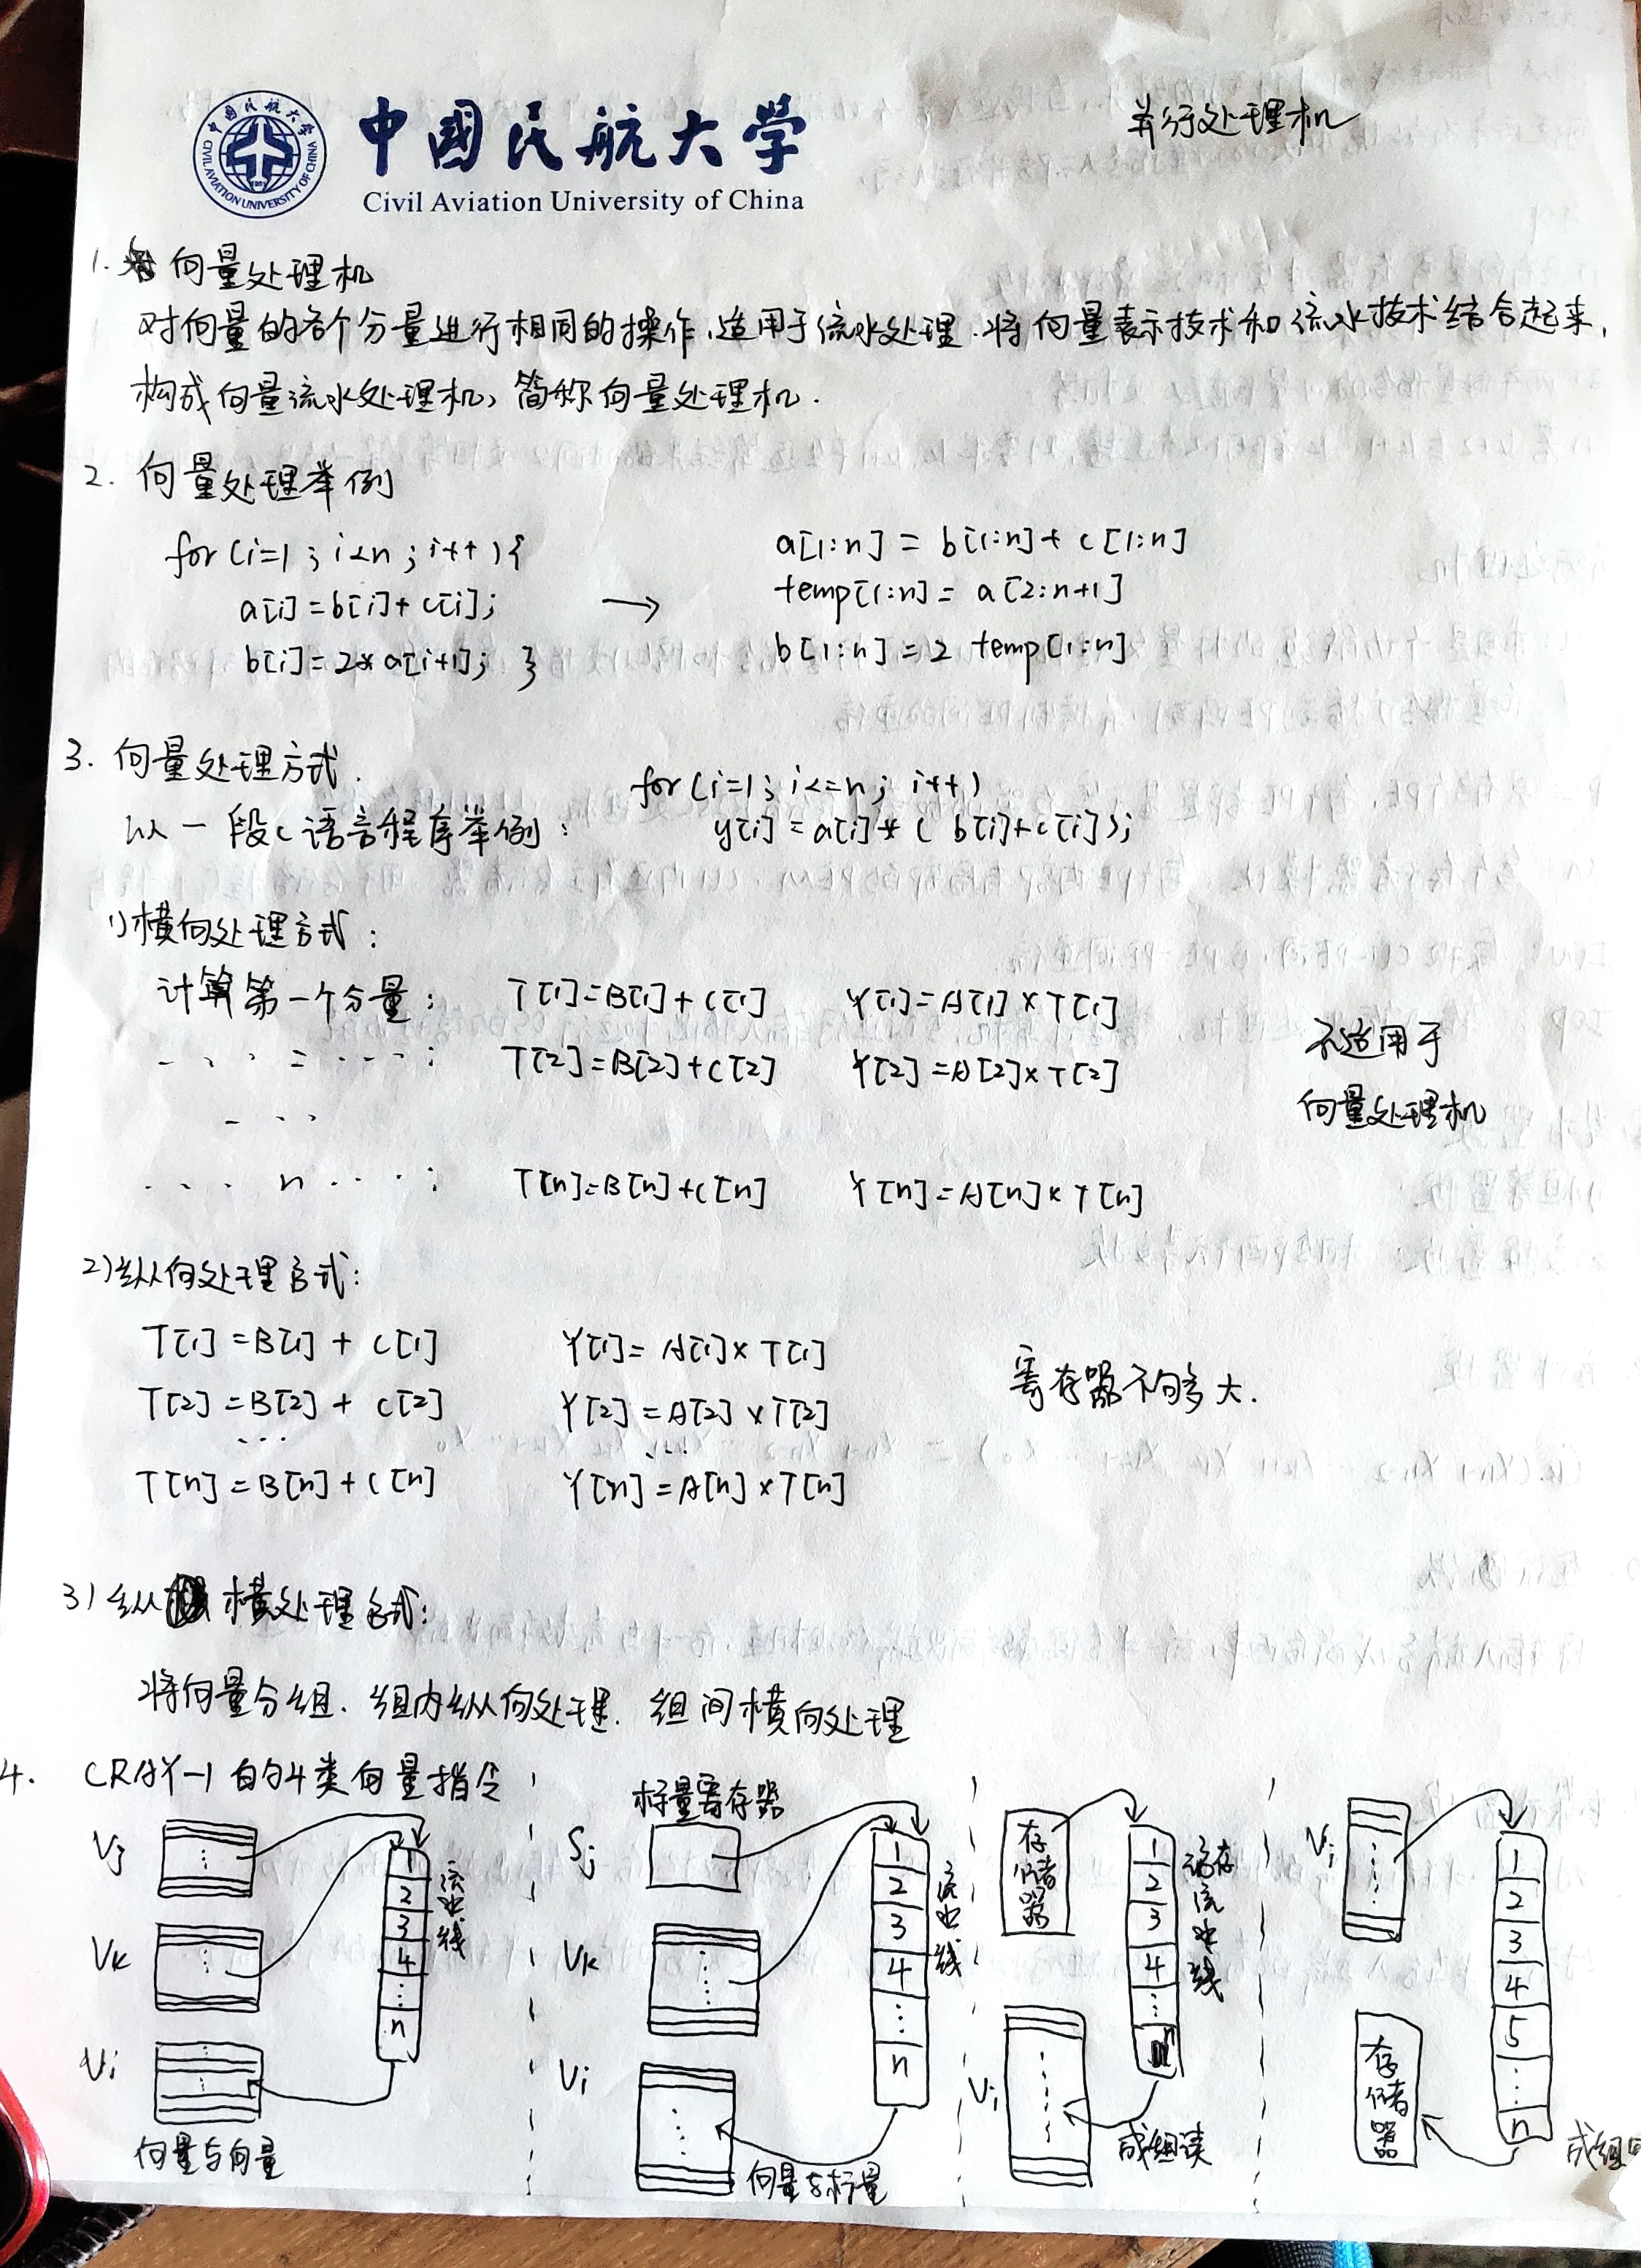 并行处理机
中国民航大学
CIVIL AVIATION UNIVERSITY OF CHINA
中國民航大学
Civil Aviation University of China
1. 向量处理机
对向量的各个分量进行相同的操作,适用于流水处理.将向量表示技术和流水技术结合起来,
构成向量流水处理机,简称向量处理机.
2. 向量处理举例
for(i=1; i<n; i++){
a[i]=b[i]+c[i];
b[i]=2*a[i+1]; }
→
a[1:n] = b[1:n]+ c[1:n]
temp[1:n] = a[2:n+1]
b[1:n] = 2 temp[1:n]
3. 向量处理方式.
以一段c语言程序举例:
for(i=1; i<=n; i++)
y[i] = a[i]*( b[i]+c[i]);
1)横向处理方式:
计算第一个分量: T[1]=B[1]+C[1] Y[1]=A[1]×T[1]
....二....: T[2]=B[2]+C[2] Y[2]=A[2]×T[2]
...
... n ....: T[n]=B[n]+C[n] Y[n]=A[n]×T[n]
不适用于
向量处理机
2)纵向处理方式:
T[1]=B[1]+ C[1] Y[1]= A[1]×T[1]
T[2]=B[2]+ C[2] Y[2]=A[2]×T[2]
... ...
T[n]=B[n]+C[n] Y[n]=A[n]×T[n]
寄存器不够大.
3)纵横处理方式:
将向量分组.组内纵向处理.组间横向处理
4. CRAY-1的4类向量指令
Vj
Vk
Vi
1
2
3
4
⋮
n
流水线
向量与向量
标量寄存器
Sj
Vk
Vi
1
2
3
4
⋮
n
流水线
向量与标量
存储器
Vi
1
2
3
4
⋮
n
访存流水线
成组读
Vi
存储器
1
2
3
4
5
⋮
n
成组